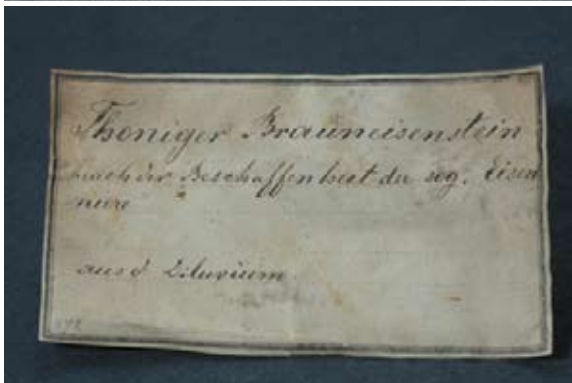 Thoniger Brauneisenstein
nach der Beschaffenheit der sog. Eisen
niere
aus d Diluvium